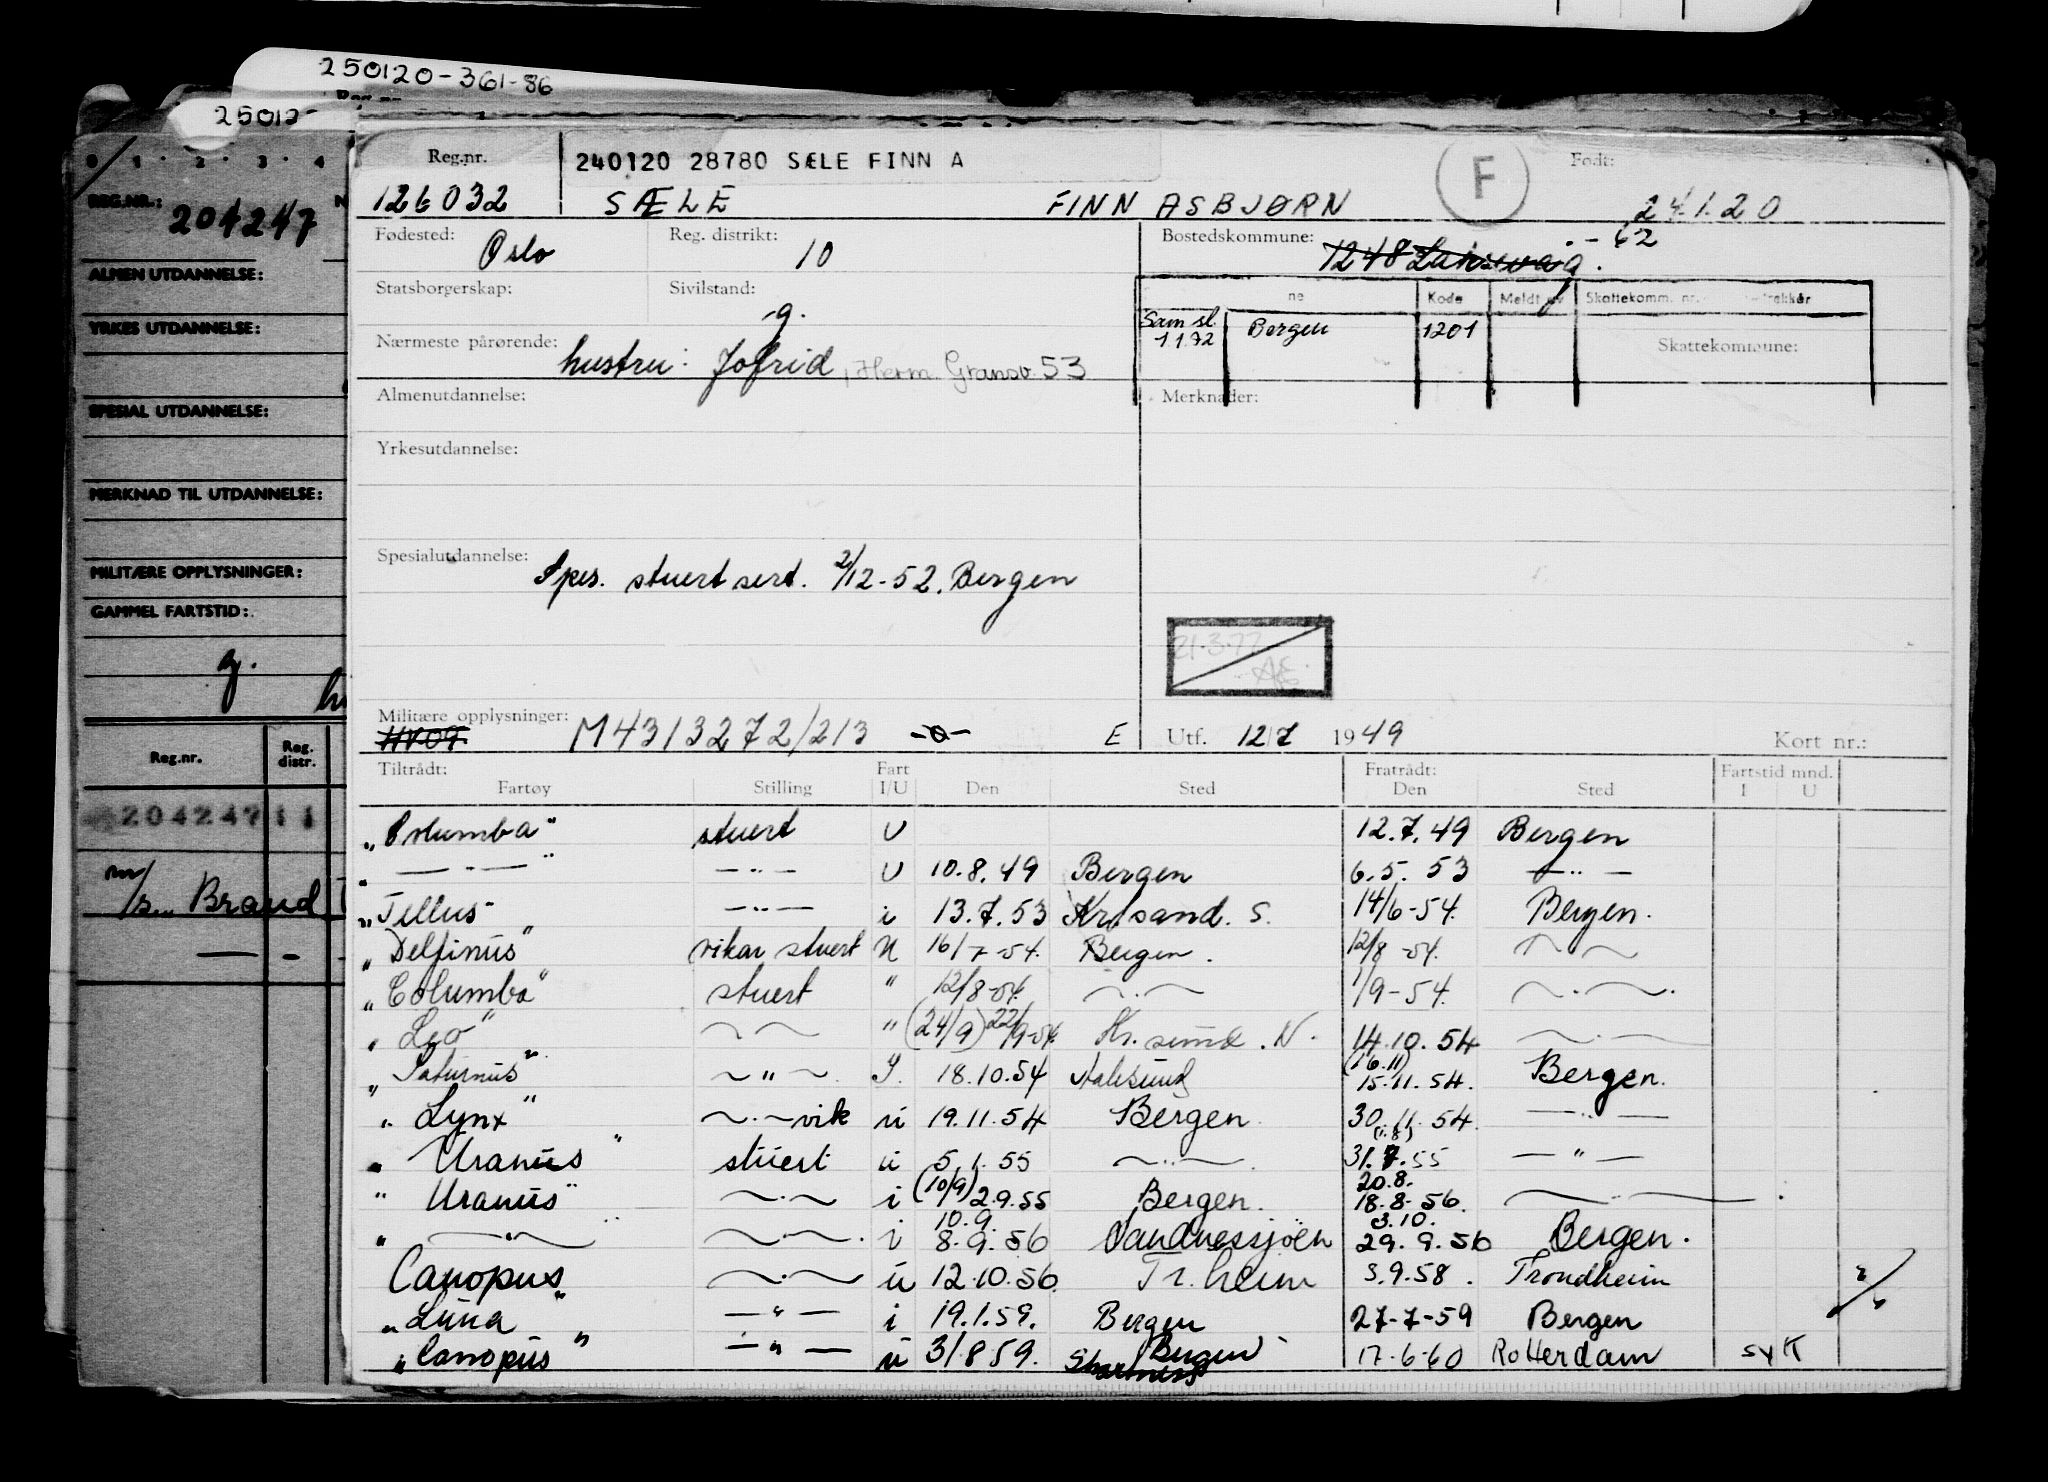 250120-361-86
25012-
0 1 2 3 4
REG.NR.: 204247 N
ALMEN UTDANNELSE:
YRKES UTDANNELSE:
SPESIAL UTDANNELSE:
MERKNAD TIL UTDANNELSE:
MILITÆRE OPPLYSNINGER:
GAMMEL FARTSTID:
g.
Reg.nr. Reg. distr.
204247 11
m/s Brand
— - —
Reg.nr. 240120 28780 SÆLE FINN A F Født:
126032 SÆLE FINN ASBJØRN 24.1.20
Fødested: Oslo Reg. distrikt: 10 Bostedskommune: 1248 Laksevåg. - 62
Statsborgerskap: Sivilstand: g.
ne Kode Meldt av Skattekomm. nr.
Sam sl. 1.1.72 Bergen 1201 Skattekommune:
Nærmeste pårørende: hustru: Jofrid, Herm. Gransv. 53
Almenutdannelse: Merknader:
Yrkesutdannelse:
Spesialutdannelse: Spes. stuert sert. 2/12-52. Bergen
21.3.77
Militære opplysninger: HV09 M4313272/213 -0- E Utf. 12/7 1949 Kort nr.:
Tiltrådt: Fart Fratrådt: Fartstid mnd.
Fartøy Stilling I/U Den Sted Den Sted I U
"Columba" stuert U 12.7.49 Bergen
" — " — " — " — U 10.8.49 Bergen 6.5.53 — " —
"Tellus" — " — i 13.7.53 Kr.sand. S. 14/6-54. Bergen.
"Delfinus" vikar stuert U 16/7-54. Bergen. 12/8-54. ~ ~
"Columba" stuert " 12/8-54. ~ . ~ 1/9-54. ~ . ~
"Leo" ~ ~ " (24/9) 22/9-54. Kr. sund. N. 14.10.54 ~ . ~
"Saturnus" ~ " ~ I. 18.10.54 Aalesund (16.11) 15.11.54. Bergen.
"Lynx" ~ . ~ vik u 19.11.54 Bergen. 30.11.54. — " —
"Uranus" stuert u 5.1.55 ~ " ~ (1.8) 31.7.55 — " —
"Uranus" ~ . ~ i (10/9) 2.9.55 Bergen. 20.8. 18.8.56. ~ . ~
" ~ " ~ " ~ . ~ i 10.9. 8.9.56 Sandnessjöen 3.10. 29.9.56 Bergen.
Canopus" ~ . ~ u 12.10.56 Tr.heim 3.9.58. Trondheim
"Luna" — " — i 19.1.59. Bergen 27-7-59 Bergen
"Canopus" — " — u 31.8.59. Bergen 17-6-60 Rotterdam syk